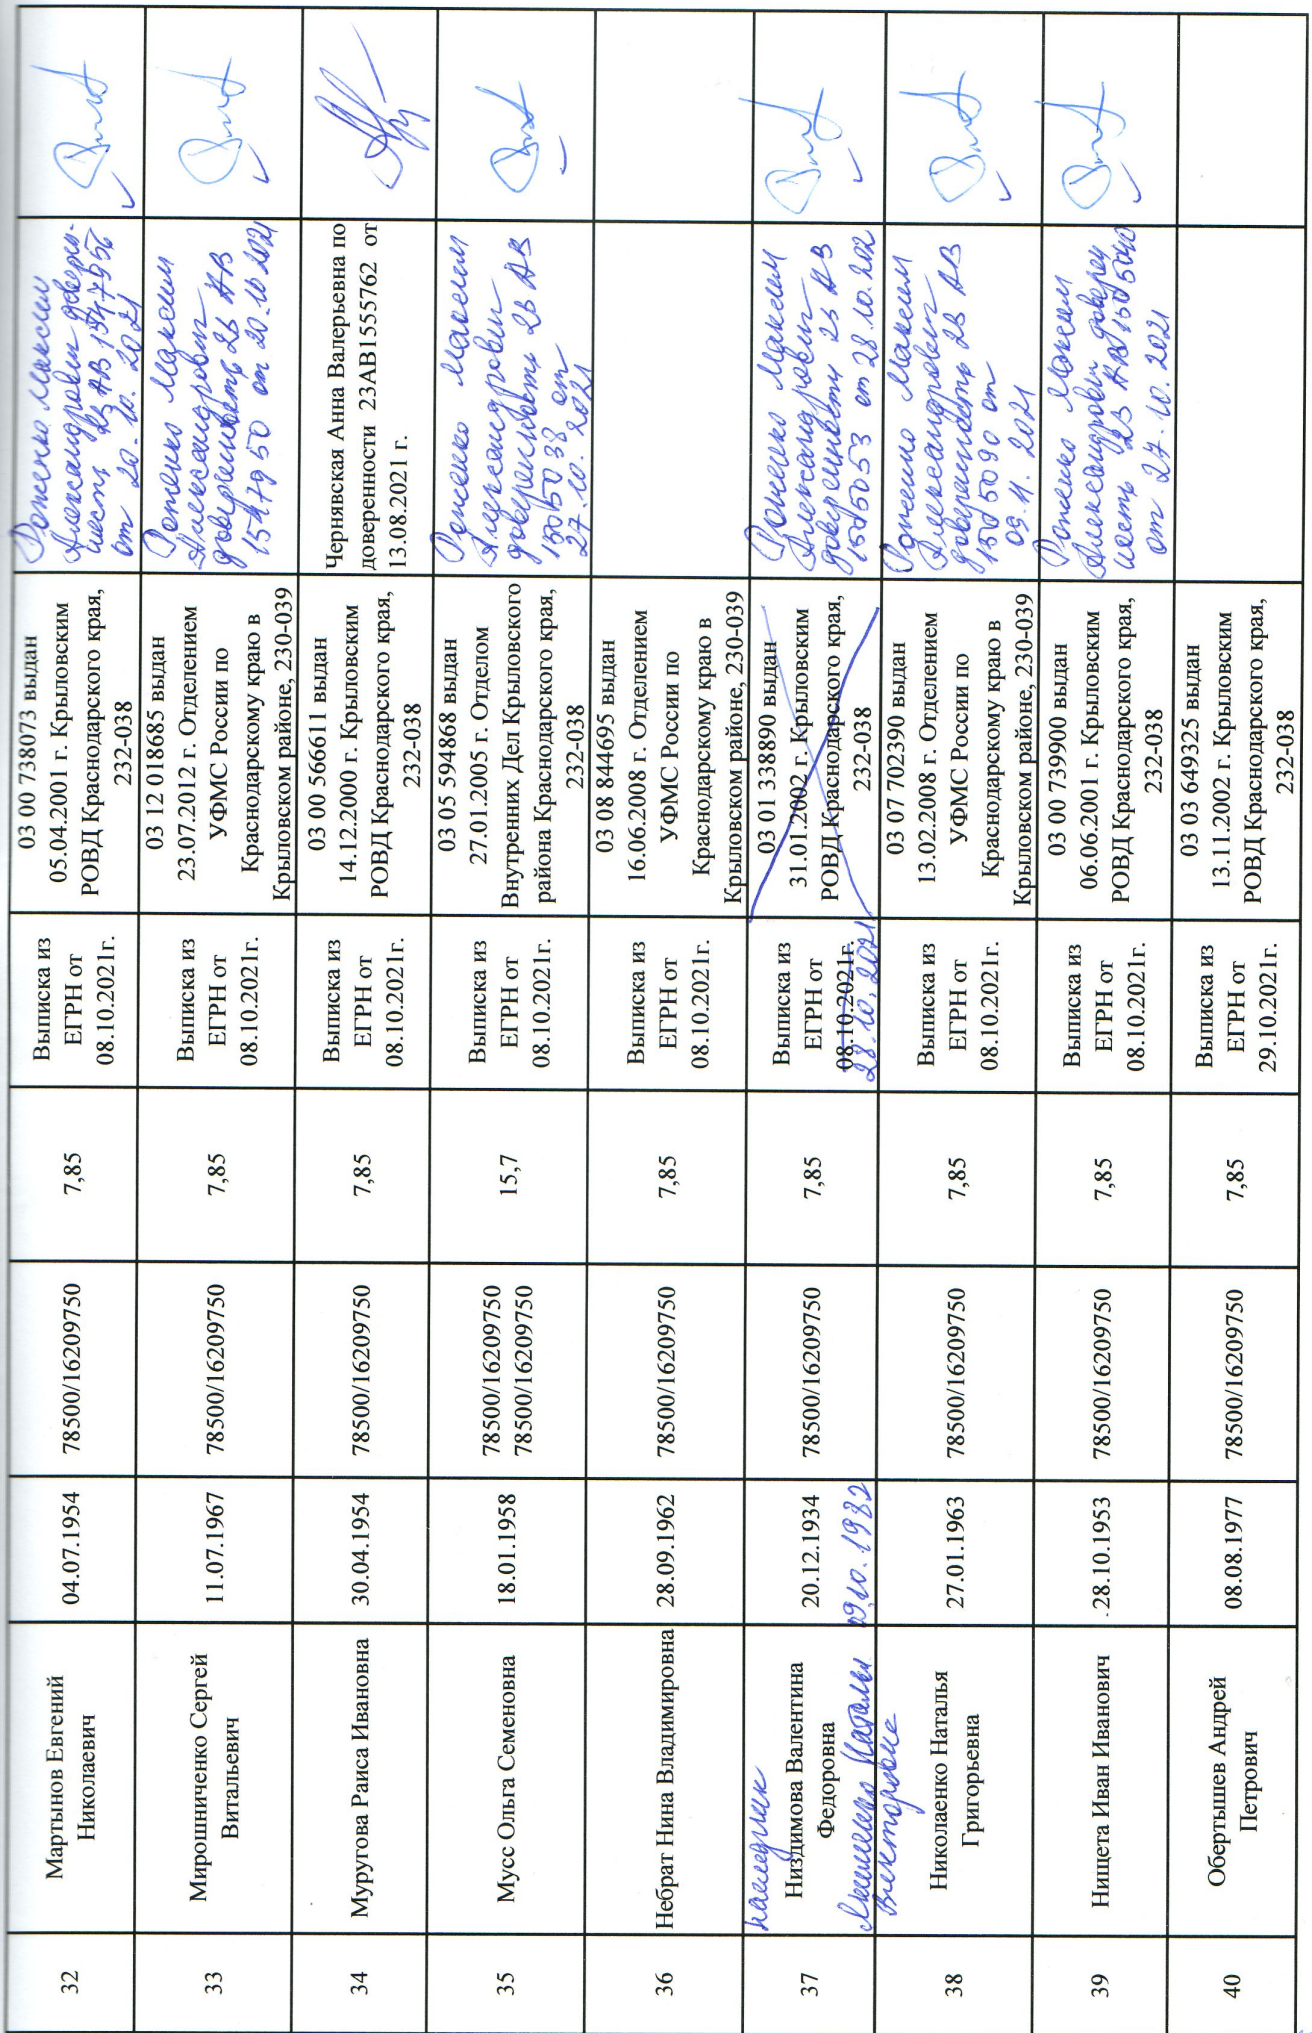 32
Мартынов Евгений
Николаевич
04.07.1954
78500/16209750
7,85
Выписка из
ЕГРН от
08.10.2021г.
03 00 738073 выдан
05.04.2001 г. Крыловским
РОВД Краснодарского края,
232-038
Максим
Александрович
от 20.10.2021
33
Мирошниченко Сергей
Витальевич
11.07.1967
78500/16209750
7,85
Выписка из
ЕГРН от
08.10.2021г.
03 12 018685 выдан
23.07.2012 г. Отделением
УФМС России по
Краснодарскому краю в
Крыловском районе, 230-039
Максим
Александрович
доверенность 23 АВ
1547950 от 20.10.2021
34
Муругова Раиса Ивановна
30.04.1954
78500/16209750
7,85
Выписка из
ЕГРН от
08.10.2021г.
03 00 566611 выдан
14.12.2000 г. Крыловским
РОВД Краснодарского края,
232-038
Чернявская Анна Валерьевна по
доверенности 23АВ1555762 от
13.08.2021 г.
35
Мусс Ольга Семеновна
18.01.1958
78500/16209750
78500/16209750
15,7
Выписка из
ЕГРН от
08.10.2021г.
03 05 594868 выдан
27.01.2005 г. Отделом
Внутренних Дел Крыловского
района Краснодарского края,
232-038
Максим
Александрович
доверенность 23 АВ
1505038 от
27.10.2021
36
Небрат Нина Владимировна
28.09.1962
78500/16209750
7,85
Выписка из
ЕГРН от
08.10.2021г.
03 08 844695 выдан
16.06.2008 г. Отделением
УФМС России по
Краснодарскому краю в
Крыловском районе, 230-039
37
наследник
Низдимова Валентина
Федоровна
Наталья
Викторовна
20.12.1934
09.10.1982
78500/16209750
7,85
Выписка из
ЕГРН от
08.10.2021г.
28.10.2021
03 01 338890 выдан
31.01.2002 г. Крыловским
РОВД Краснодарского края,
232-038
Максим
Александрович
доверенности 23 АВ
1505053 от 28.10.202
38
Николаенко Наталья
Григорьевна
27.01.1963
78500/16209750
7,85
Выписка из
ЕГРН от
08.10.2021г.
03 07 702390 выдан
13.02.2008 г. Отделением
УФМС России по
Краснодарскому краю в
Крыловском районе, 230-039
Максим
Александрович
доверенность 23 АВ
1505090 от
09.11.2021
39
Нищета Иван Иванович
28.10.1953
78500/16209750
7,85
Выписка из
ЕГРН от
08.10.2021г.
03 00 739900 выдан
06.06.2001 г. Крыловским
РОВД Краснодарского края,
232-038
Максим
Александрович доверен
ность 23 АВ 1505040
от 27.10.2021
40
Обертышев Андрей
Петрович
08.08.1977
78500/16209750
7,85
Выписка из
ЕГРН от
29.10.2021г.
03 03 649325 выдан
13.11.2002 г. Крыловским
РОВД Краснодарского края,
232-038